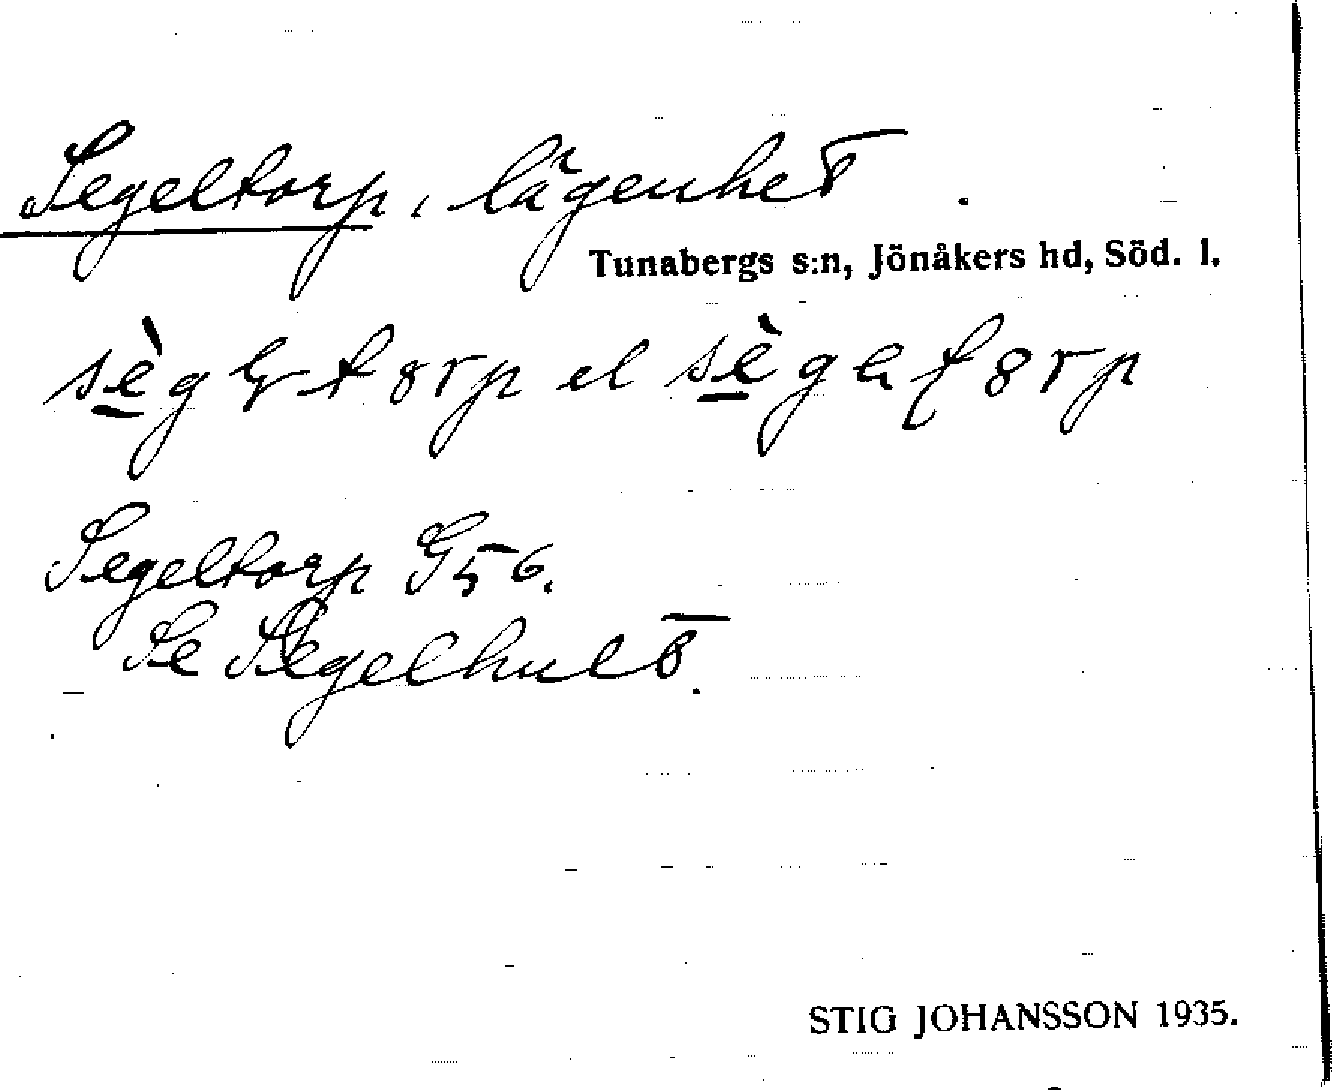 Segeltorp, lägenhet.
Tunabergs s:n, Jönåkers hd, Söd. l.
el
Segeltorp G 56.
Se Segelhult.
STIG JOHANSSON 1935.